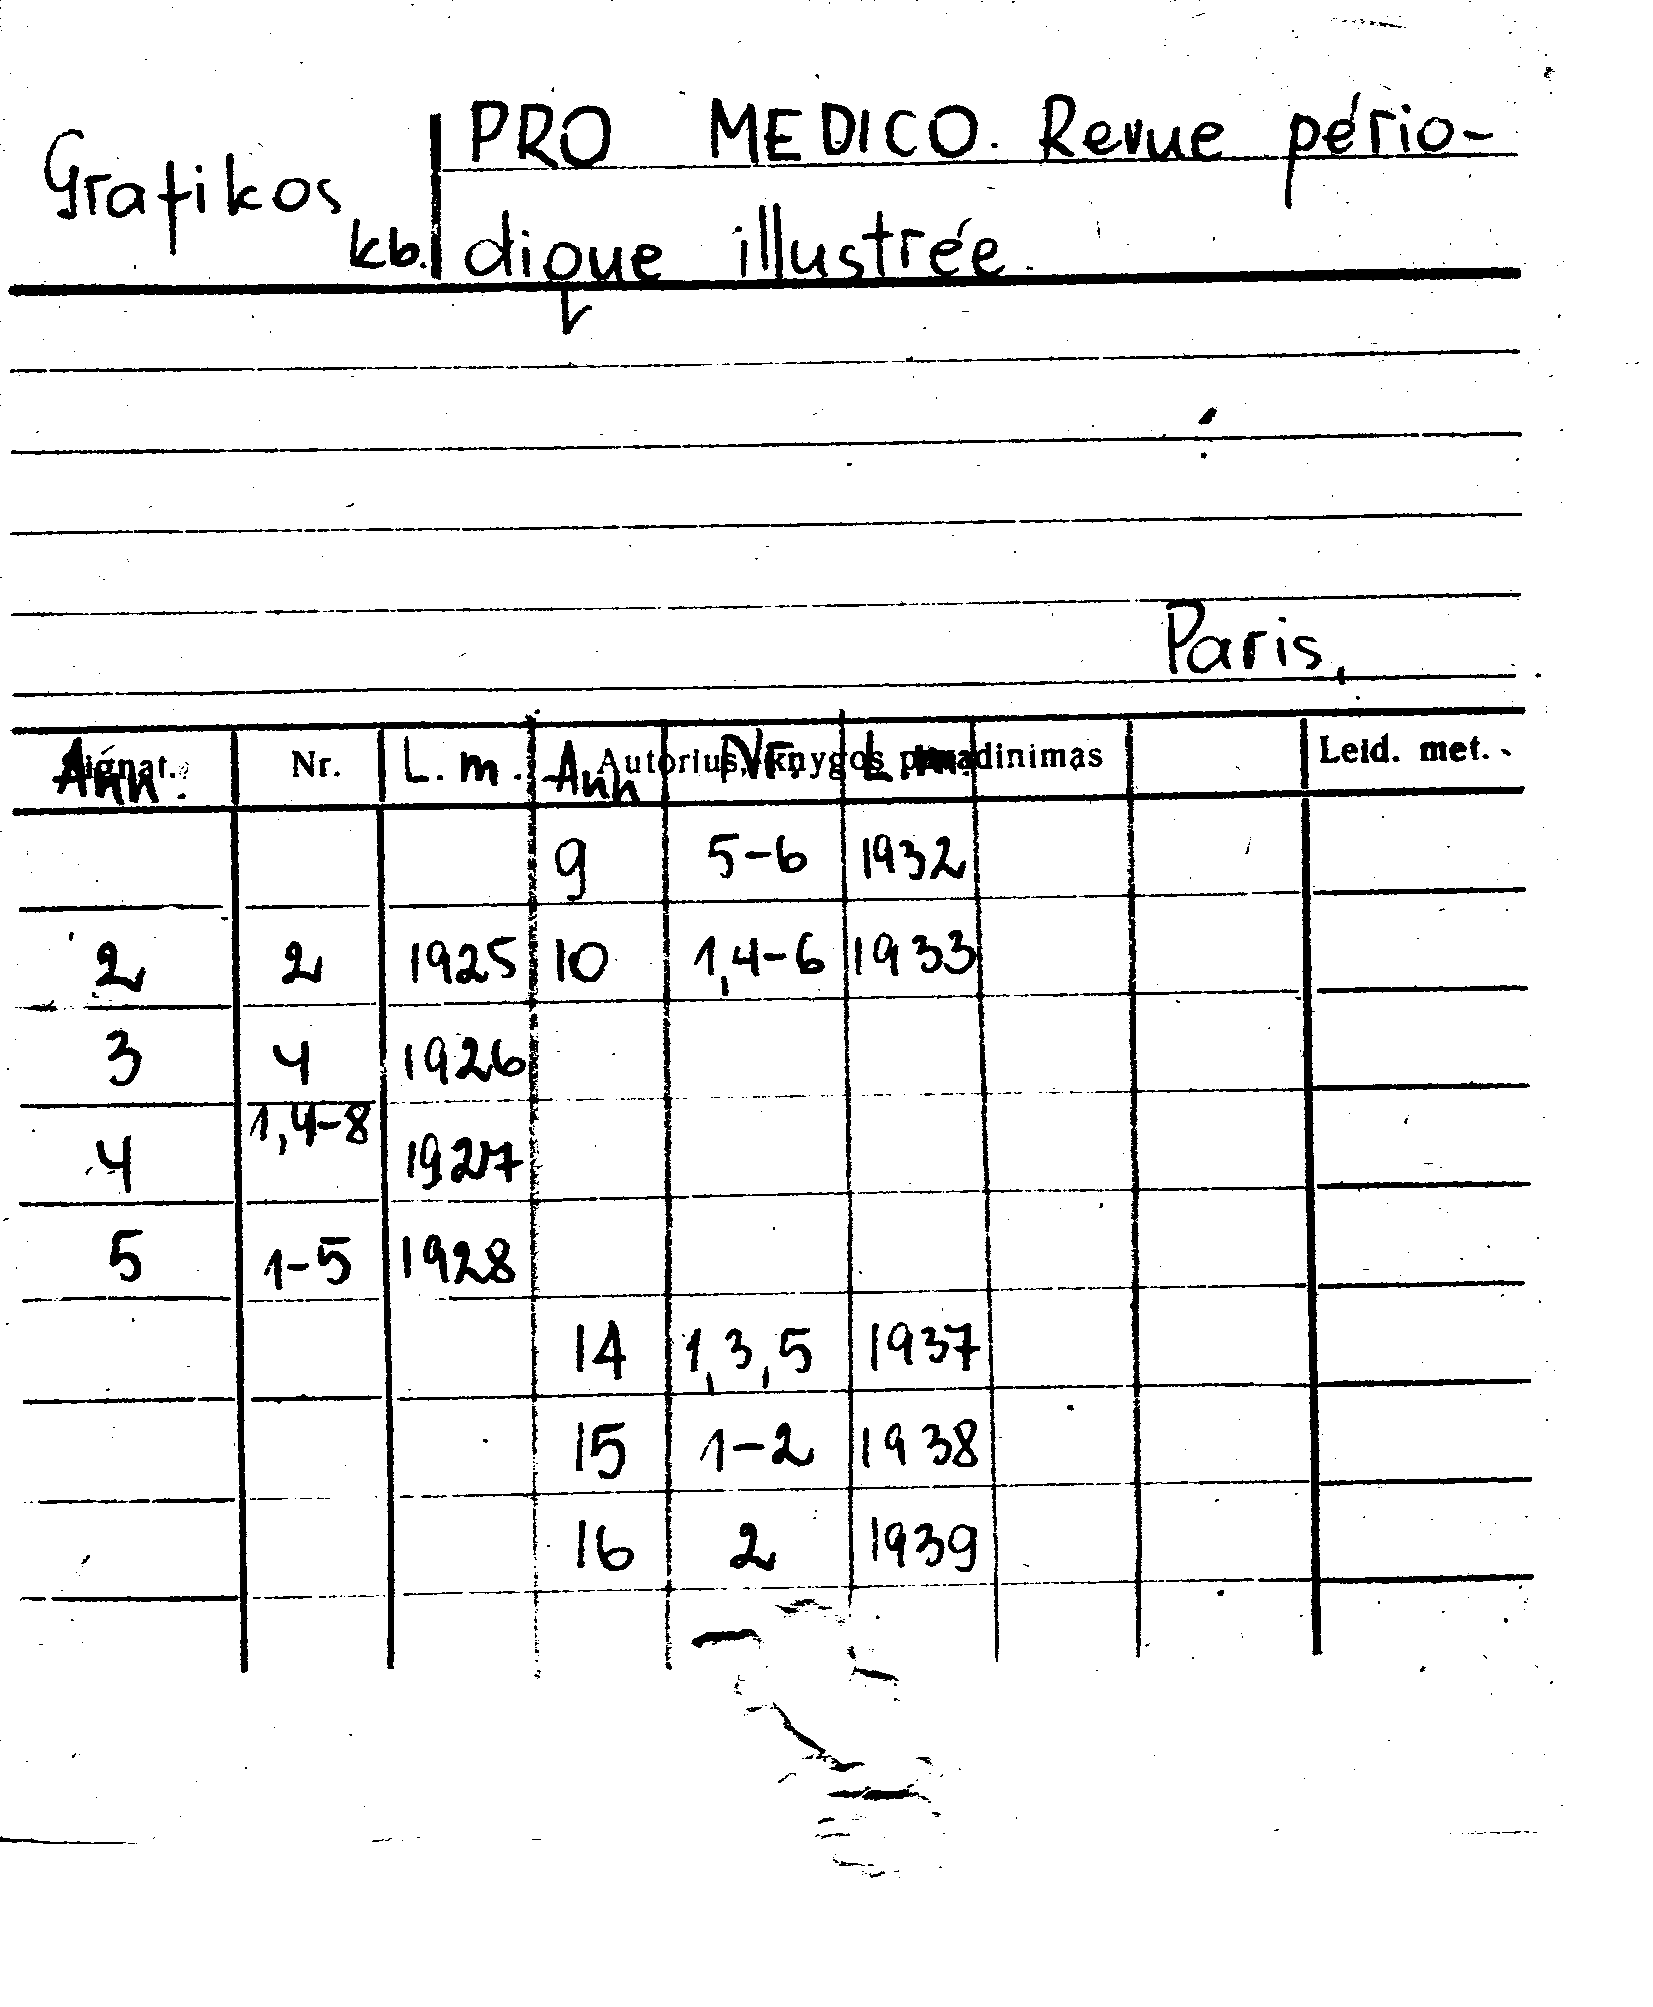 PRO MEDICO. Revue pério-
Grafikos
kb. dique illustrée.
Paris,
Signat. Nr. L. m. Autorius, knygos pavadinimas Leid. met.
Ann. Ann Nr. L. m.
9 5-6 1932
2 2 1925 10 1,4-6 1933
3 4 1926
4 1,4-8 1927
5 1-5 1928
14 1,3,5 1937
15 1-2 1938
16 2 1939